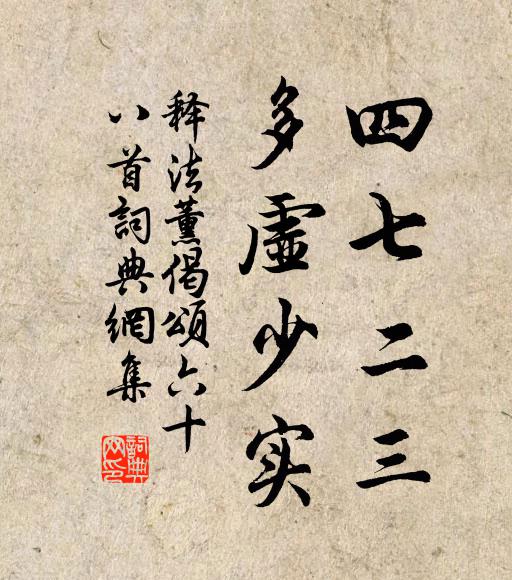 四七二三
多虚少实
释法薰偈頌六十
八首詞典網集
詞典网印